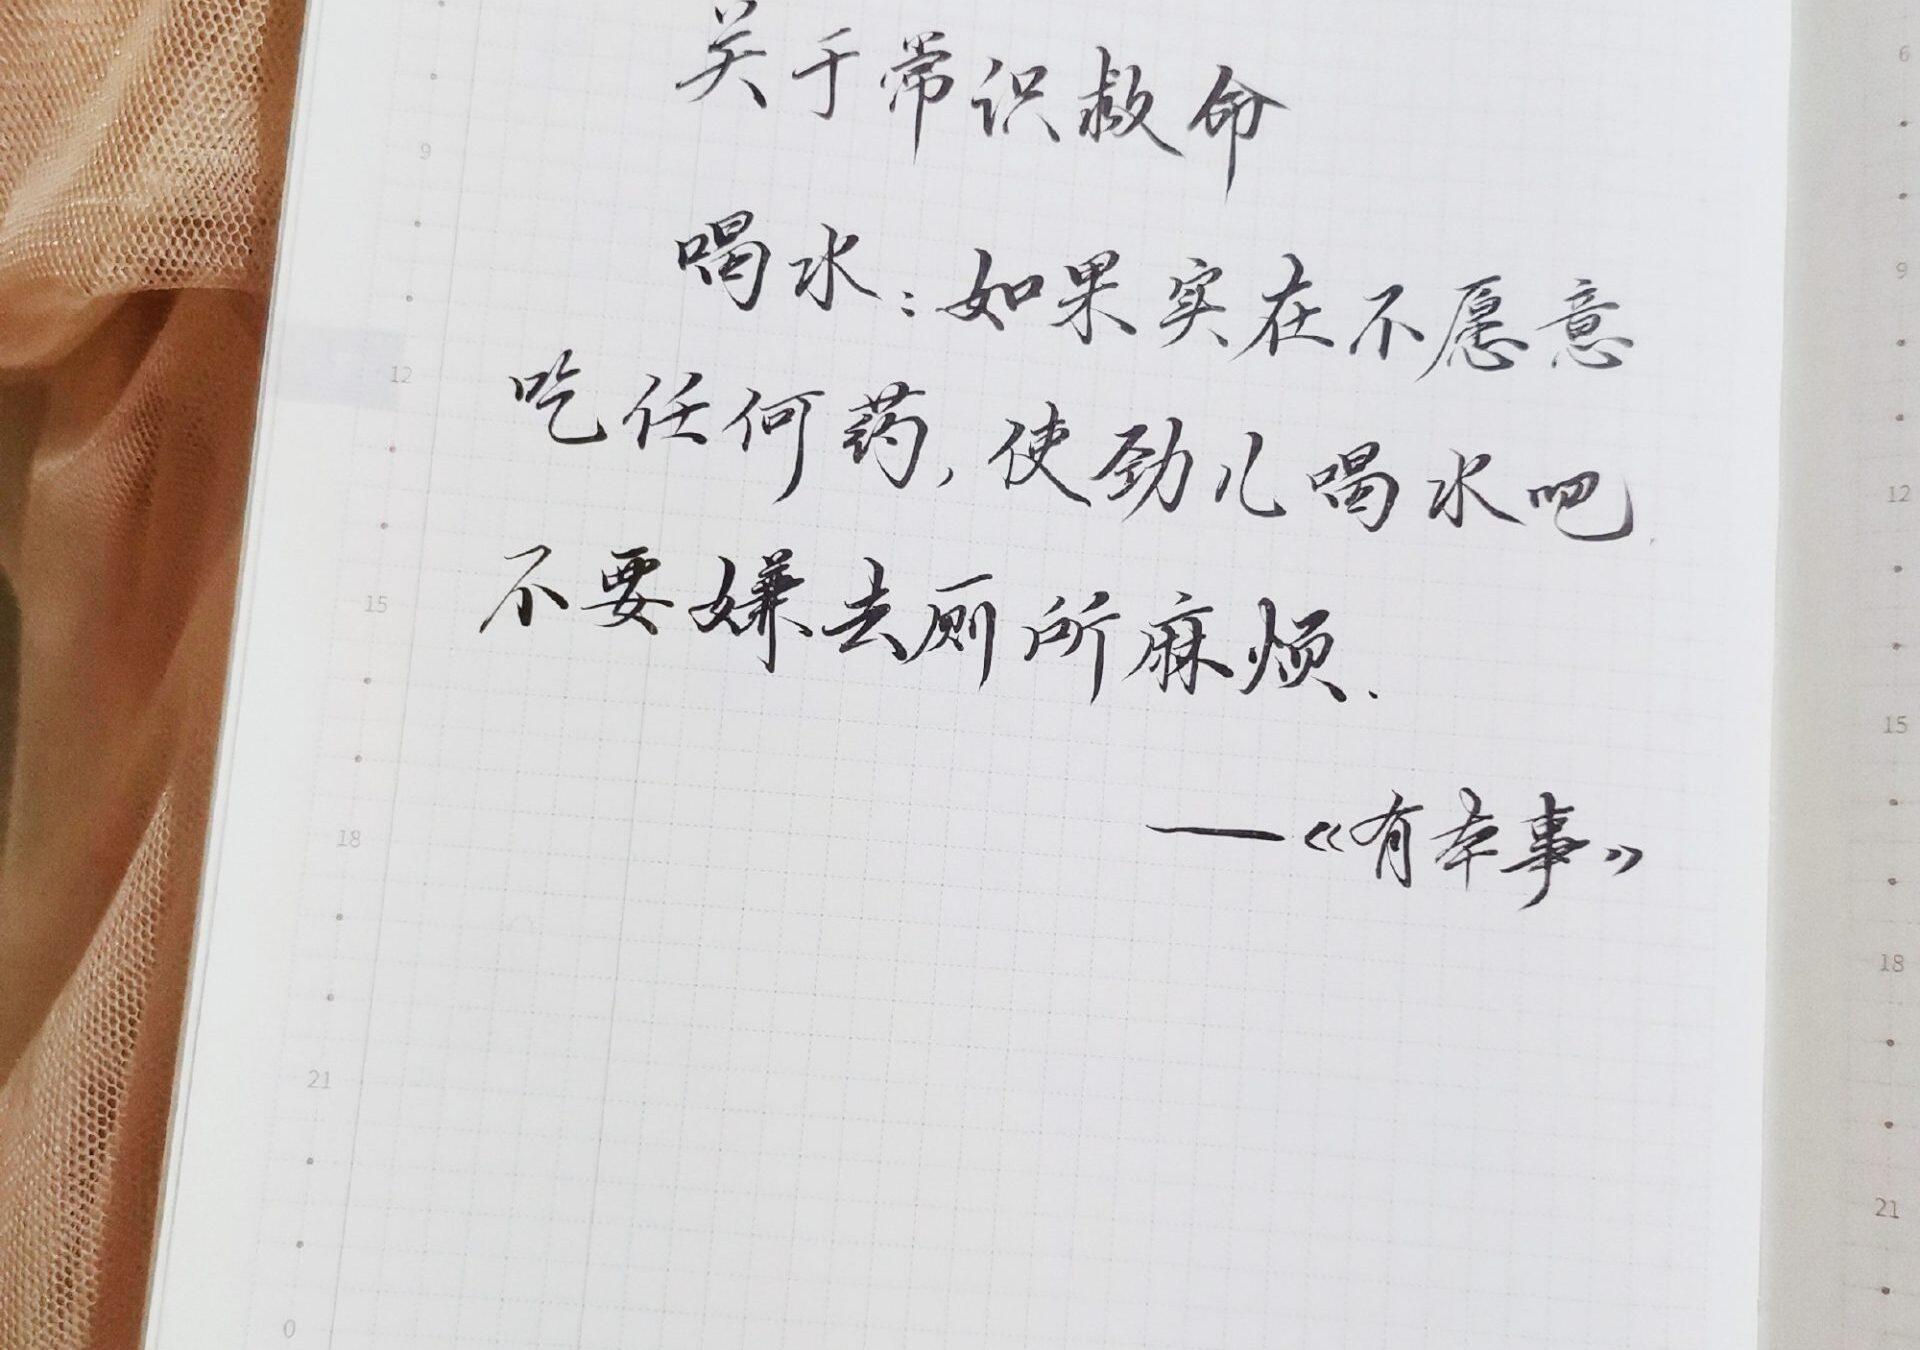 关于常识救命
喝水:如果实在不愿意
吃任何药,使劲儿喝水吧.
不要嫌去厕所麻烦.
—《有本事》
9
12
15
18
21
0
6
9
12
15
18
21